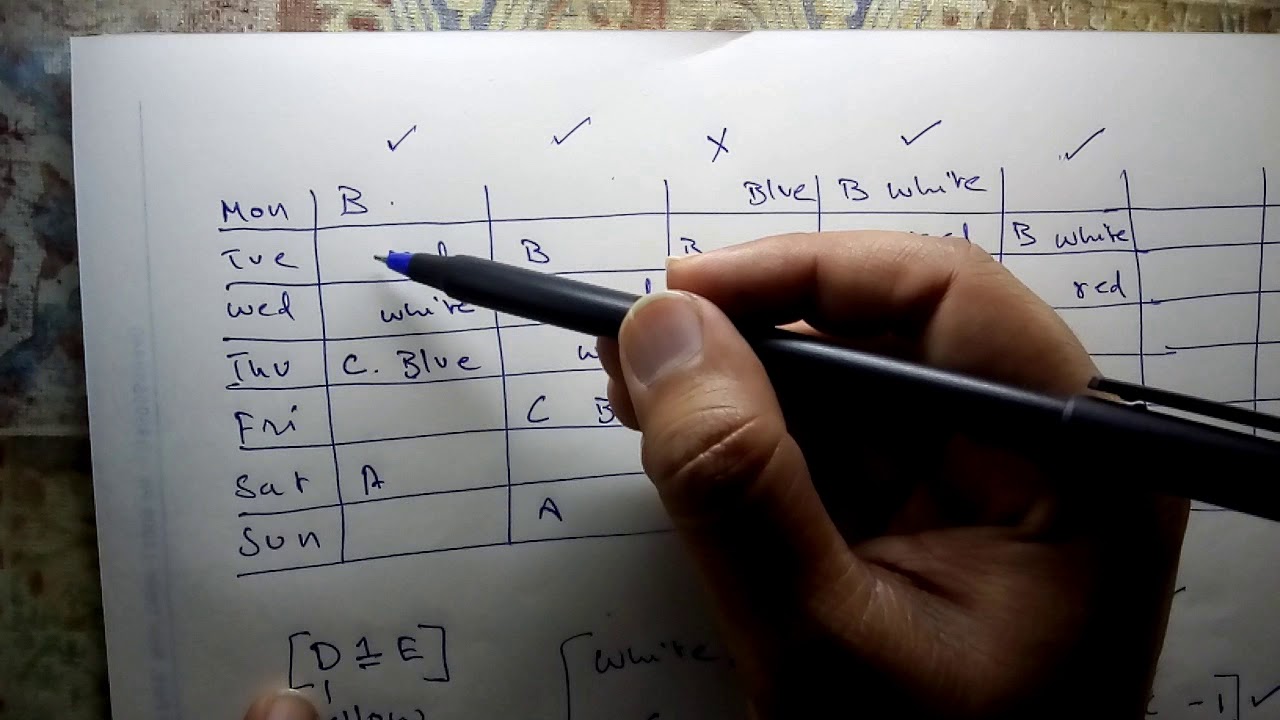 ✓ ✓ X ✓ ✓
Mon B. Blue B white
Tue B B B white
Wed white red
Thu C. Blue
Fri C B
Sat A
Sun A
[D 1 E] white,
-1] ✓